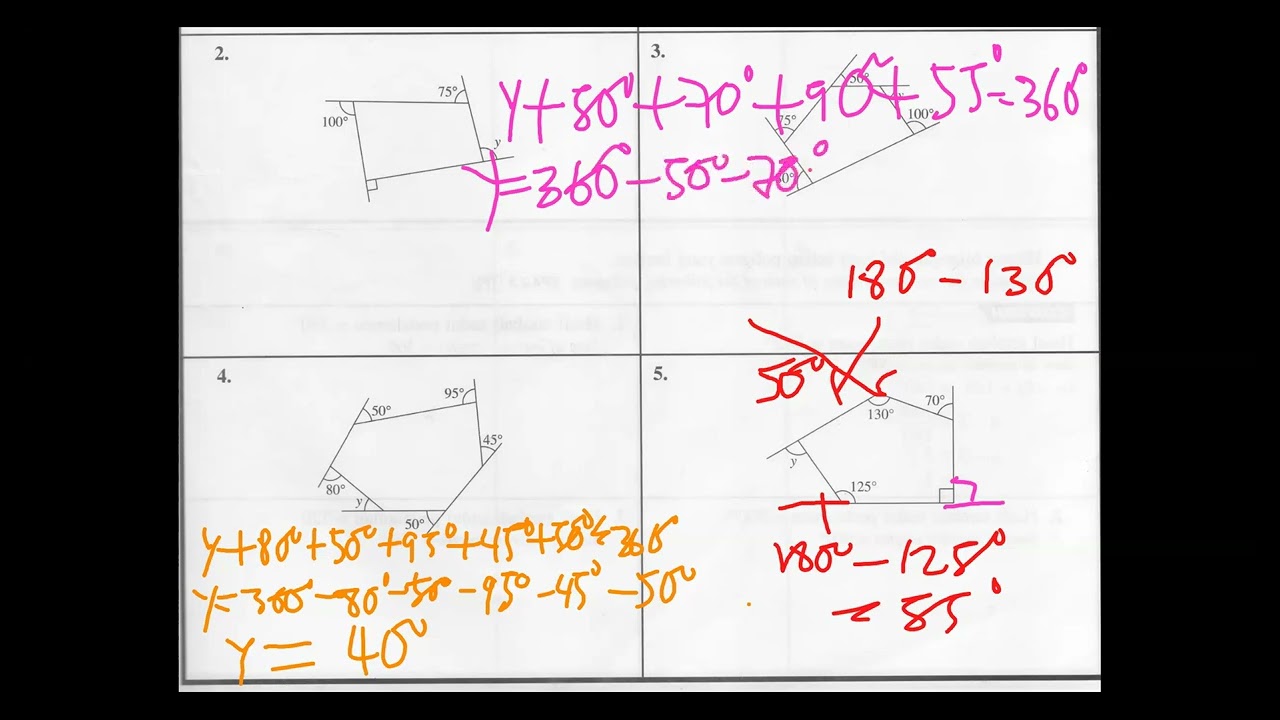 2.
3.
75°
100°
y
50°
75°
100°
y+80°+70°+90°+55°=360°
y=360°-50°-70°
180°-130°
50°
4.
5.
95°
50°
45°
80°
y
50°
70°
130°
y
125°
y+80°+50°+95°+45°+50°=360°
y=360°-80°-50°-95°-45°-50°
y=40°
180°-125°
=55°